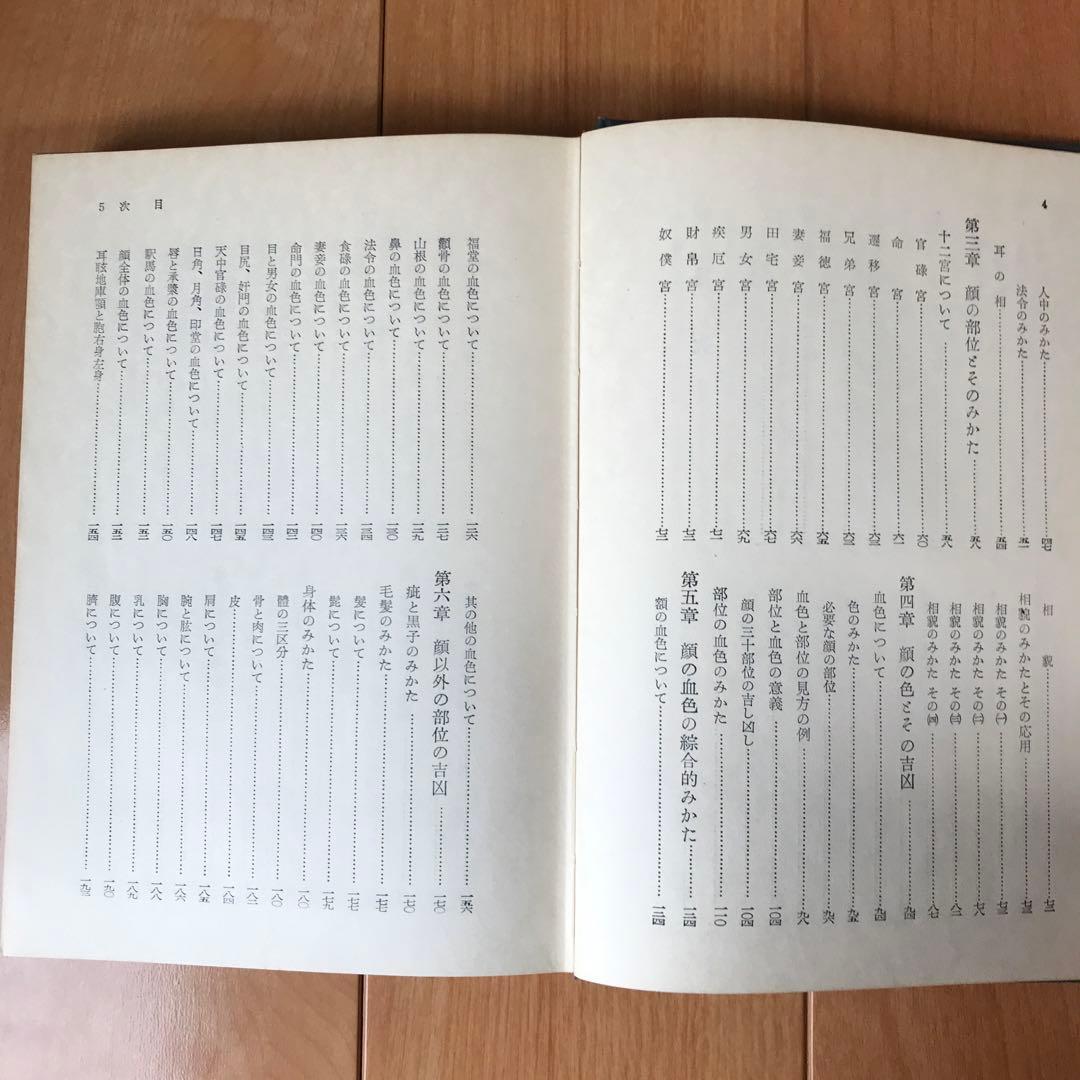 4
人中のみかた……四七
法令のみかた……五一
耳の相……五四
第三章 顔の部位とそのみかた……五八
十二宮について……五八
官碌宮……六〇
命宮……六一
遷移宮……六三
兄弟宮……六三
福徳宮……六五
妻妾宮……六六
田宅宮……六七
男女宮……六九
疾厄宮……七一
財帛宮
奴僕宮
相貌
相貌のみかたとその応用
相貌のみかた その㈠
相貌のみかた その㈡……七八
相貌のみかた その㈢……八二
相貌のみかた その㈣……八七
第四章 顔の色とその吉凶……九四
血色について……九四
色のみかた……九五
必要な顔の部位……九六
血色と部位の見方の例……九八
部位と血色の意義……一〇四
顔の三十部位の吉し凶し……一〇四
部位の血色のみかた……一一〇
第五章 顔の血色の綜合的みかた
額の血色について
5 次目
福堂の血色について……一二六
顴骨の血色について……一二七
山根の血色について……一二九
鼻の血色について……一三〇
法令の血色について……一三四
食碌の血色について……一三六
妻妾の血色について……一四〇
命門の血色について……一四二
目と男女の血色について……一四三
目尻、奸門の血色について……一四五
天中官碌の血色について……一四七
日角、月角、印堂の血色について……一四八
唇と承漿の血色について……一五〇
駅馬の血色について……一五二
顔全体の血色について……一五二
耳眩地庫顎と胞右身左身……一五四
其の他の血色について……一五六
第六章 顔以外の部位の吉凶……一七〇
疵と黒子のみかた……一七〇
毛髪のみかた……一七七
髪について……一七七
髭について……一七九
身体のみかた……一八〇
體の三区分……一八〇
骨と肉について……一八二
皮……一八四
肩について……一八五
腕と肱について……一八六
胸について……一八八
乳について……一八九
腹について……一九〇
臍について……一九三